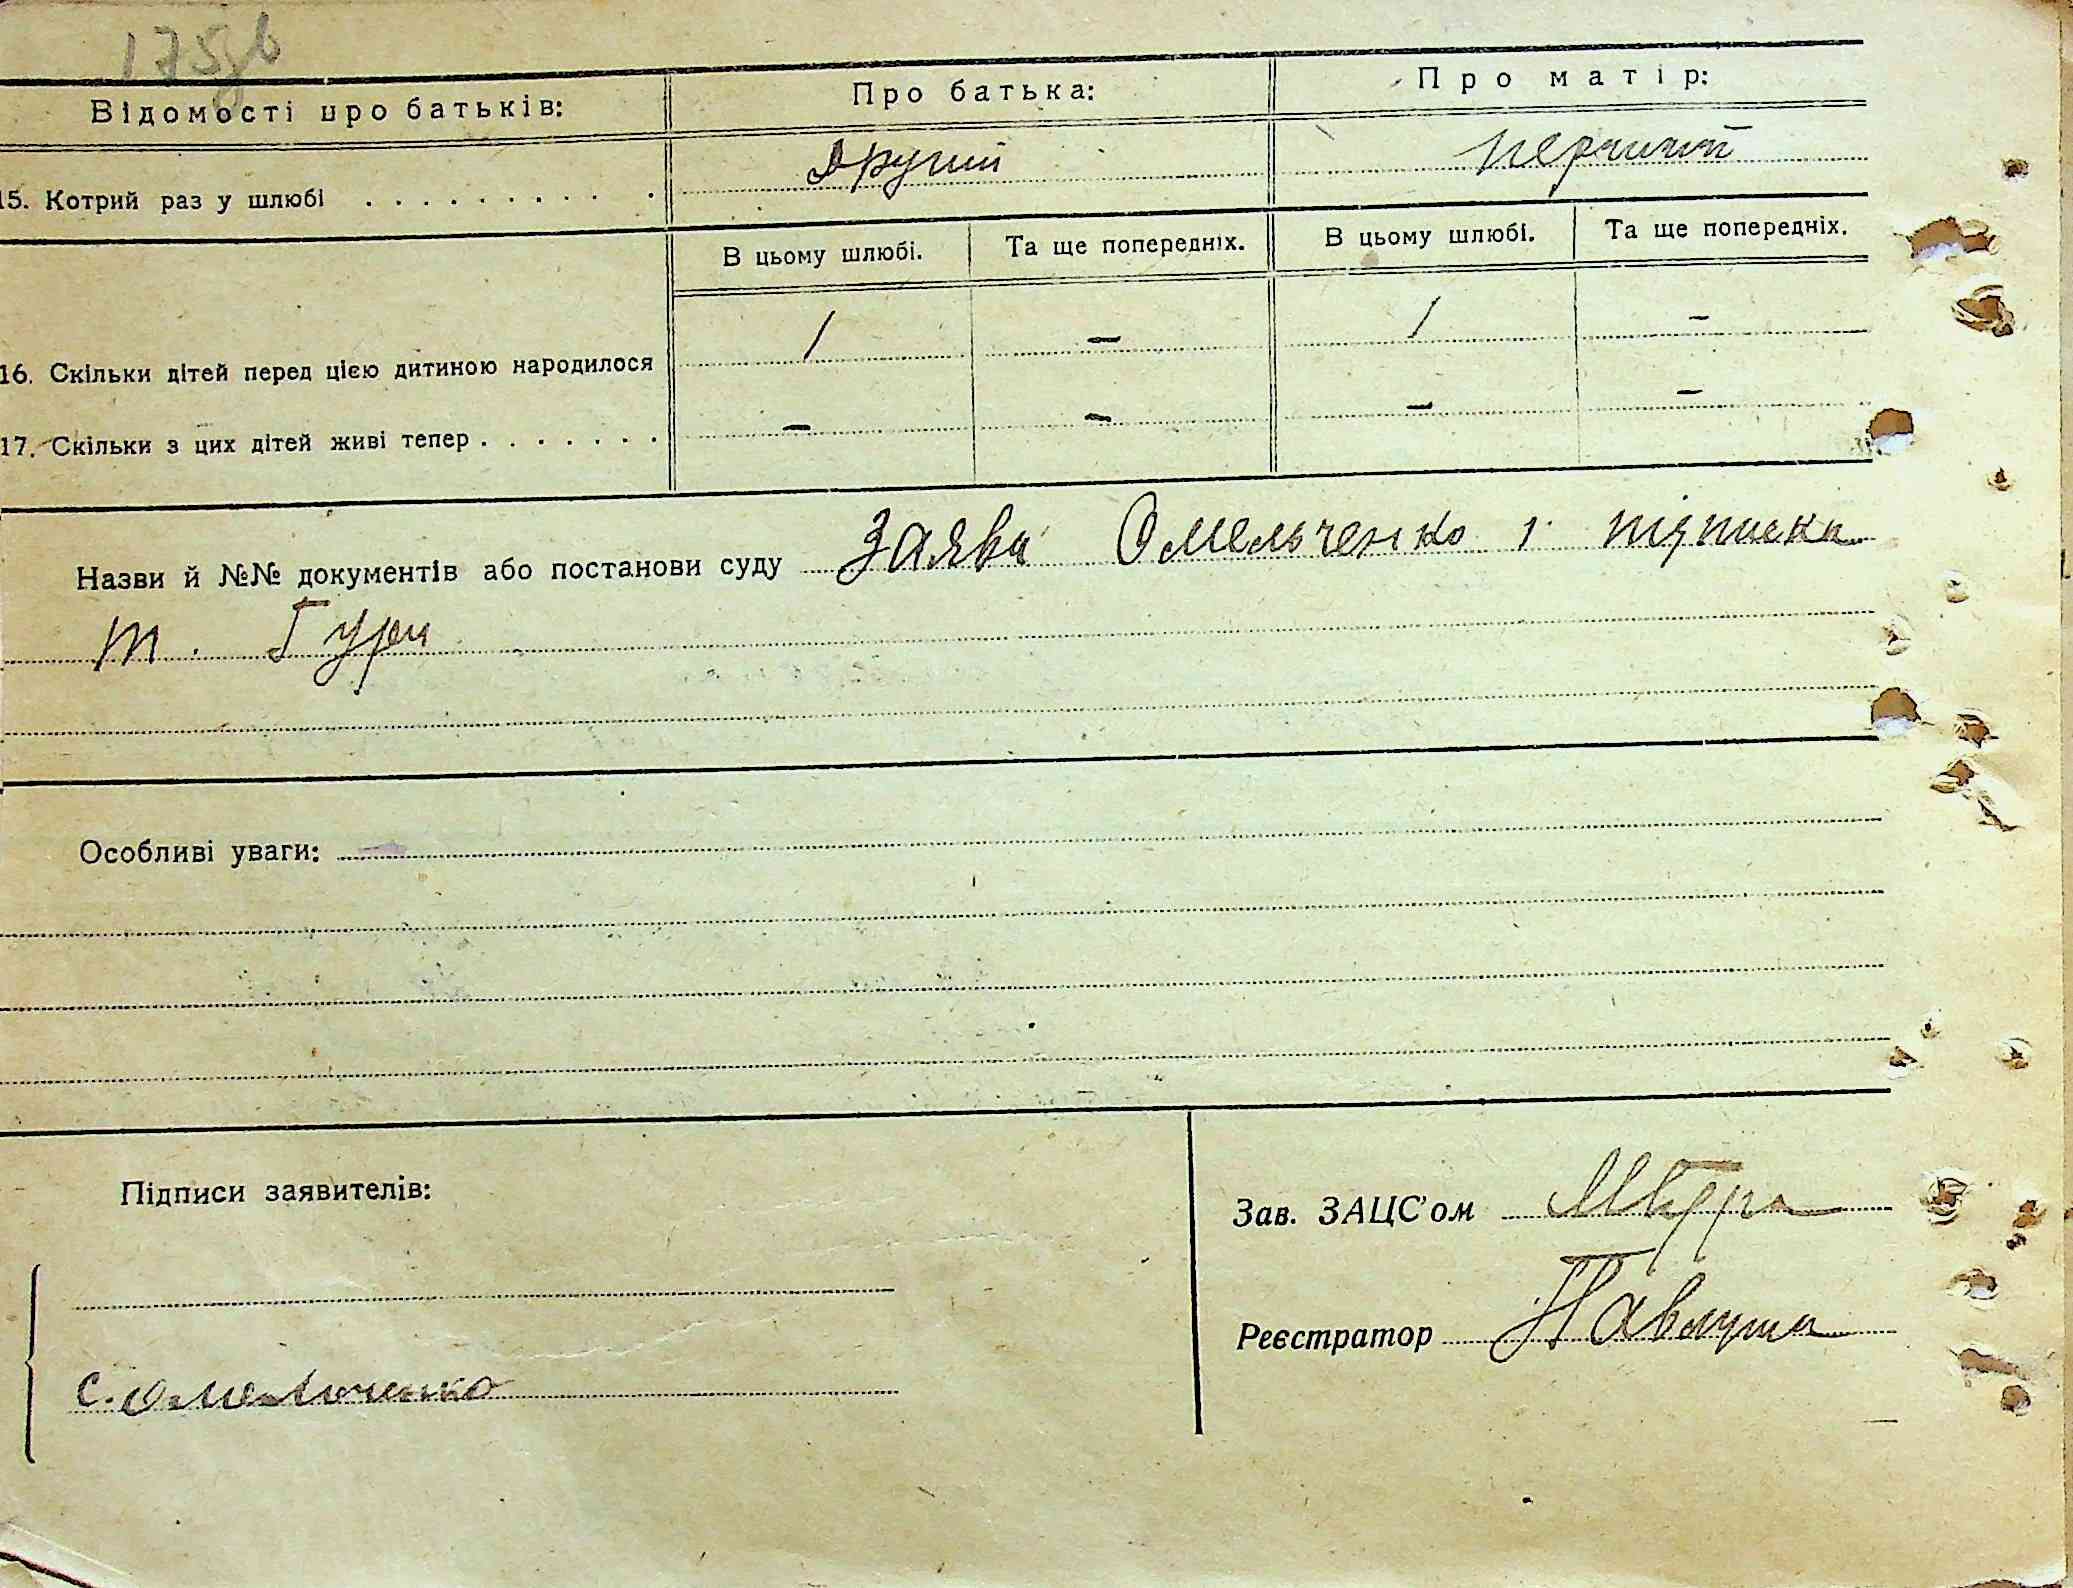 175зв
Відомості про батьків: Про батька: Про матір:
15. Котрий раз у шлюбі . . . . . . . . . . другий перший
В цьому шлюбі. Та ще попередніх. В цьому шлюбі. Та ще попередніх.
16. Скільки дітей перед цією дитиною народилося 1 – 1 –
17. Скільки з цих дітей живі тепер . . . . . . . – – – –
Назви й №№ документів або постанови суду Заява Омельченко і підписка
т. Гури
Особливі уваги:
Підписи заявителів:
Зав. ЗАЦС'ом
Реєстратор Павлуша
С. Омельченко